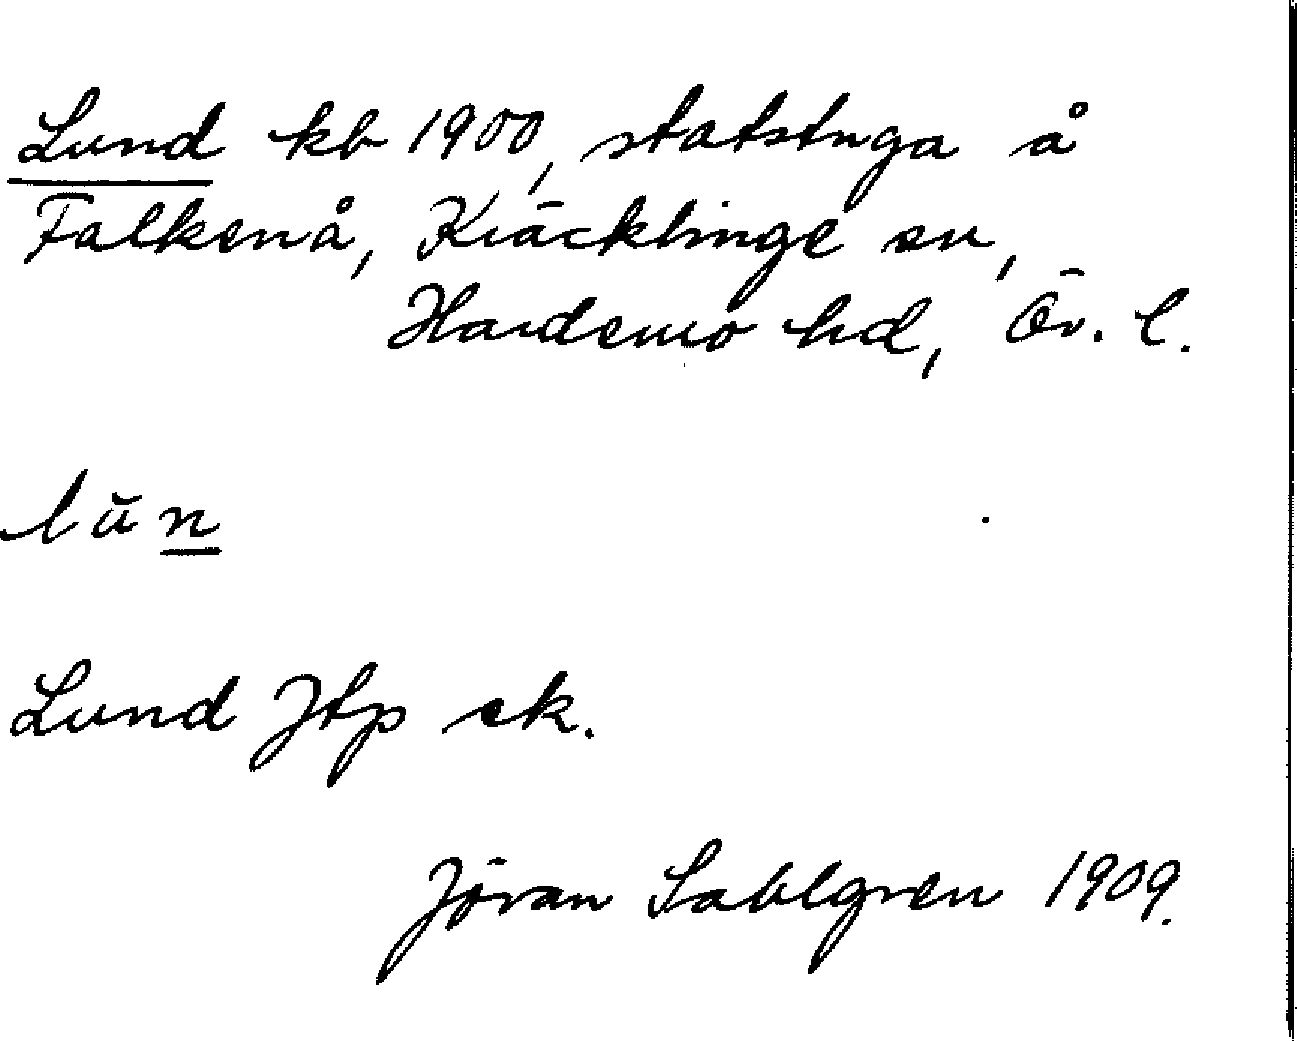 Lund kb 1900, statstuga å
Falkenå, Kräcklinge sn,
Hardemo hd, Ör. l.
lŭn
Lund Jtp ek.
Jöran Sahlgren 1909.